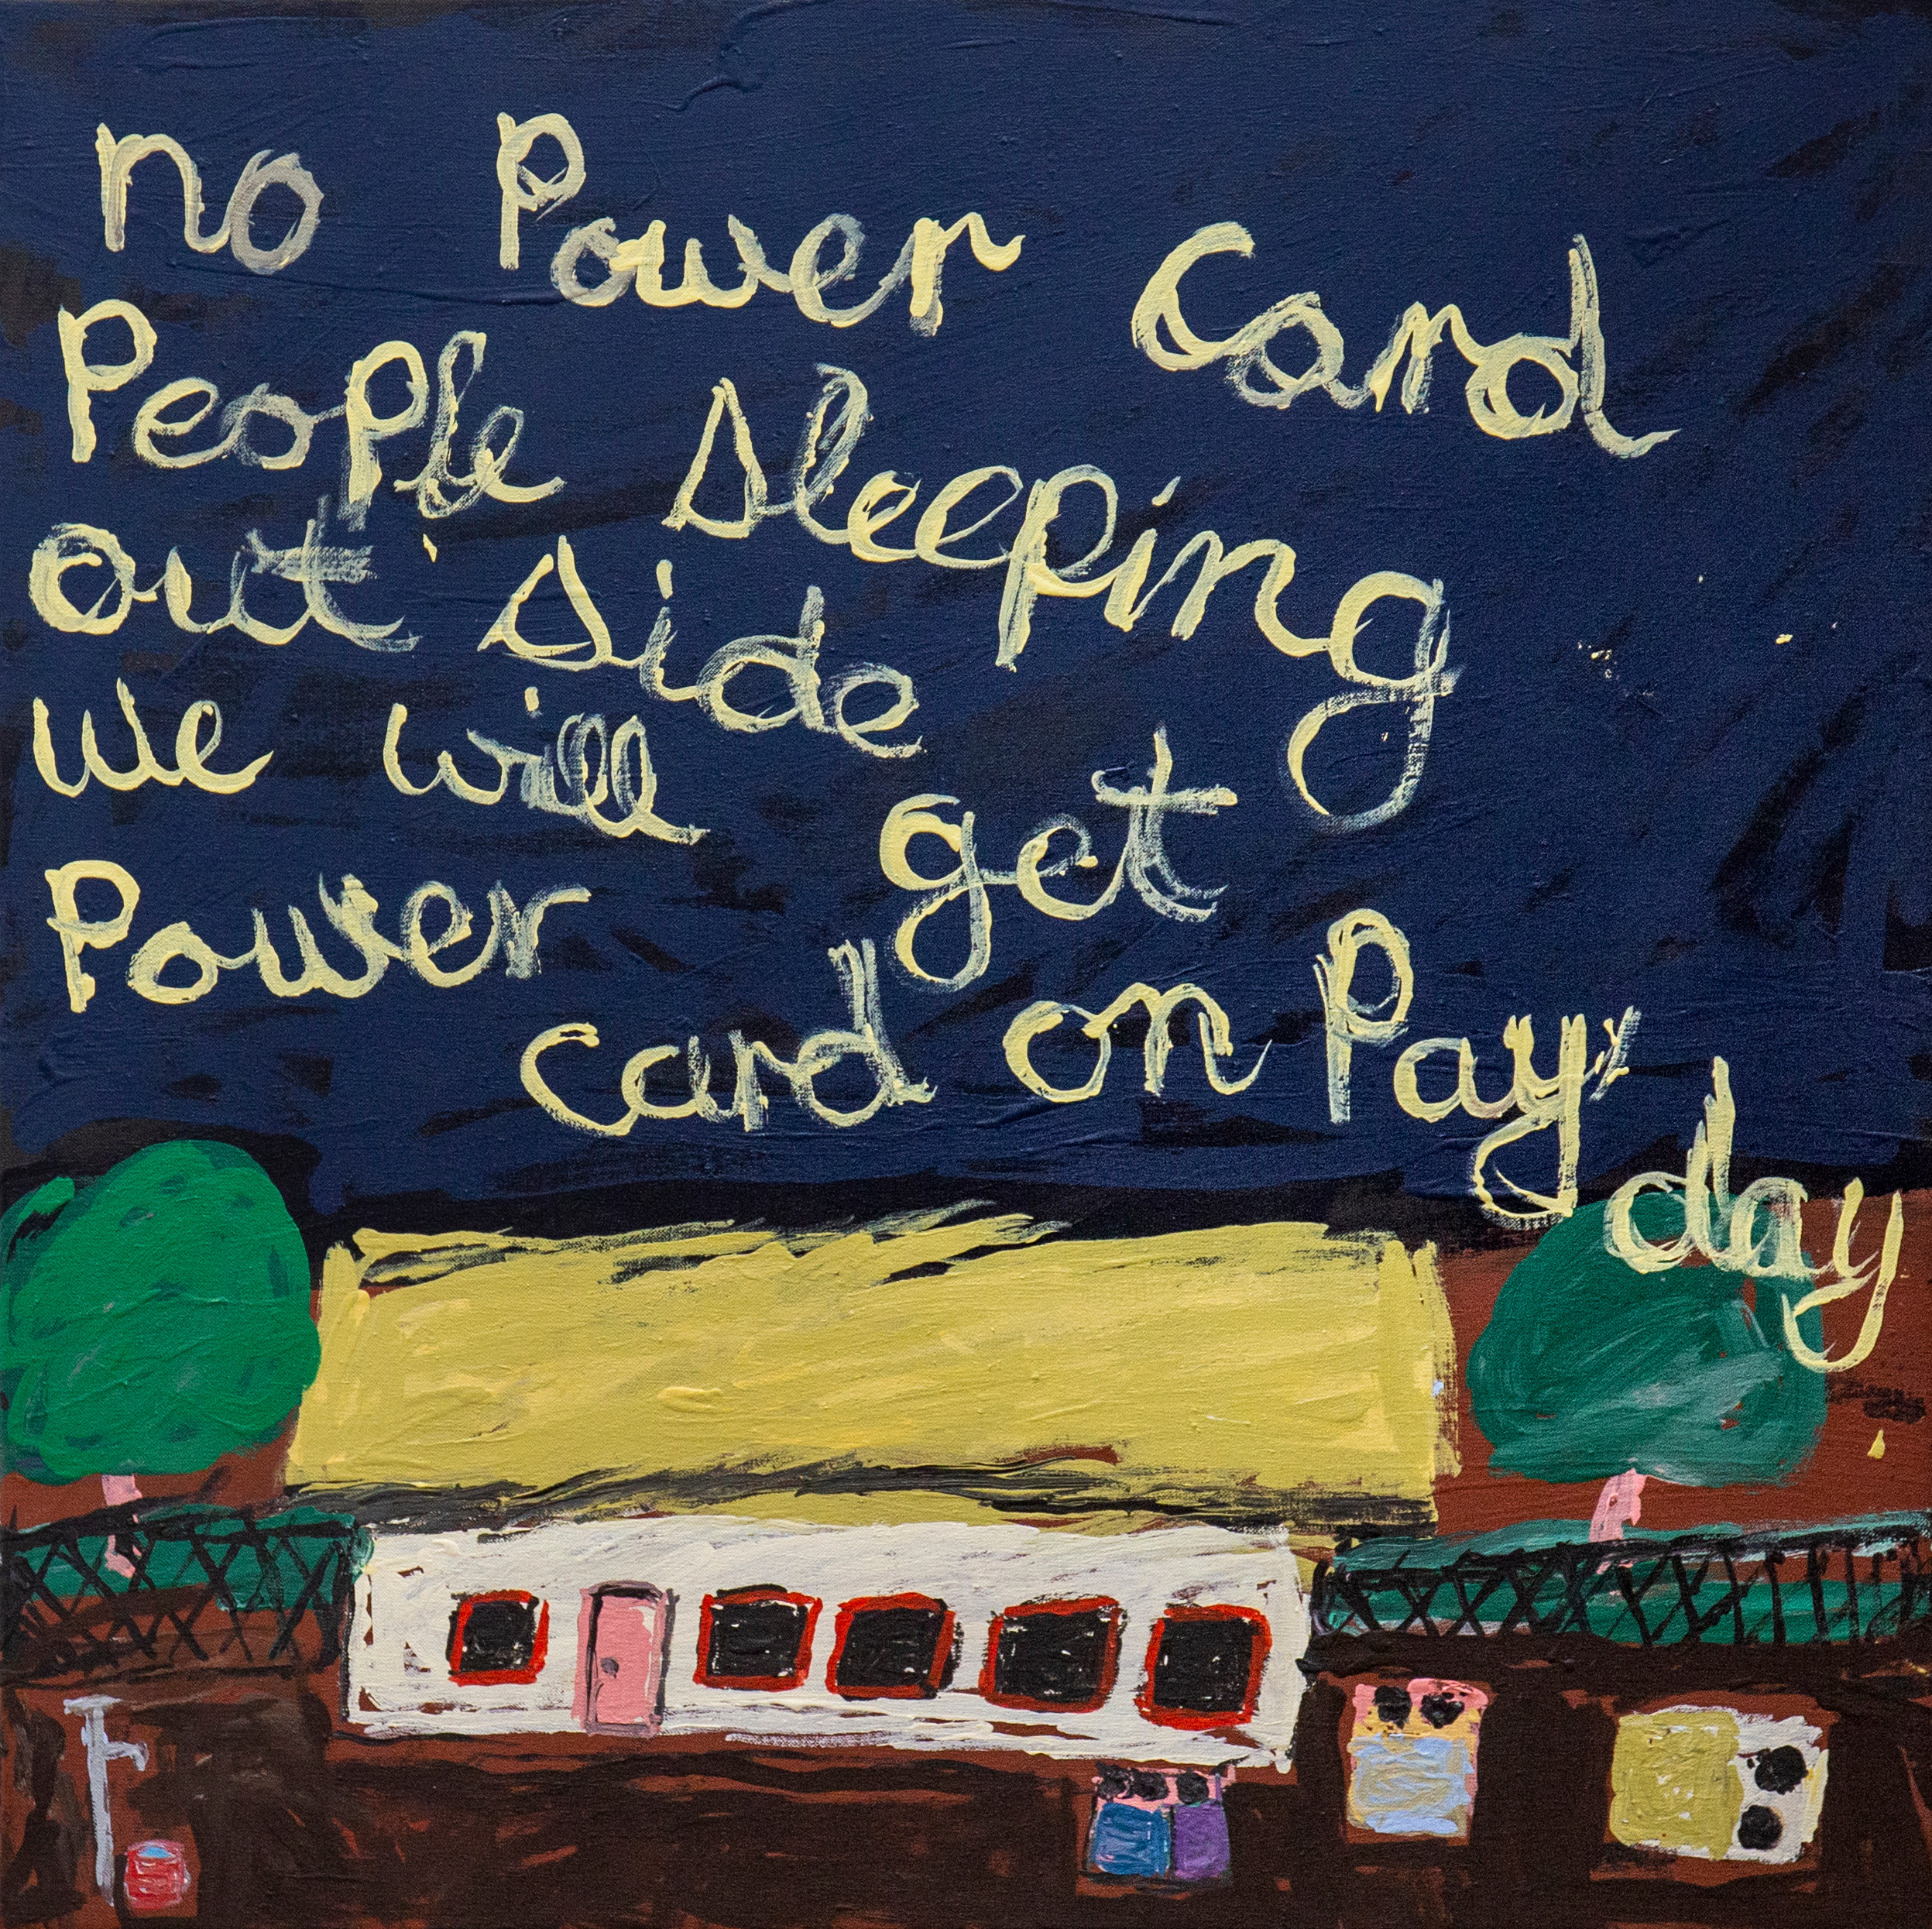 no Power Card
People sleeping
out side
we will get
Power card on Pay day